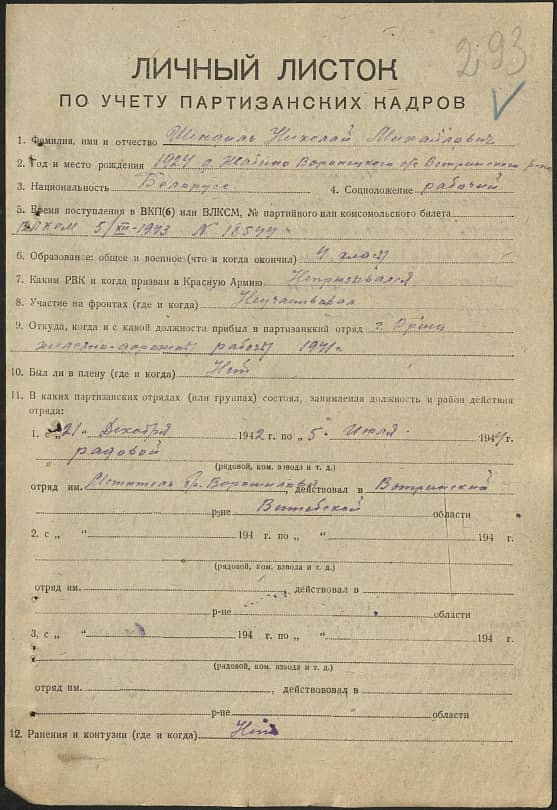 293
ЛИЧНЫЙ ЛИСТОК
ПО УЧЕТУ ПАРТИЗАНСКИХ КАДРОВ
1. Фамилия, имя и отчество Шендиль Николай Михайлович
2. Год и место рождения 1924 д. Жабино Воронецкого с/с Ветринского р-на
3. Национальность Беларусс 4. Соцположение рабочий
5. Время поступления в ВКП(б) или ВЛКСМ, № партийного или комсомольского билета
ВЛКСМ 5/XII-1943 N 18544
6. Образование: общее и военное (что и когда окончил) 4 класа
7. Каким РВК и когда призван в Красную Армию Непризывался
8. Участие на фронтах (где и когда) Неучаствовал
9. Откуда, когда и с какой должности прибыл в партизанккий отряд г. Орша
железно-дорожный рабочий 1941г.
10. Был ли в плену (где и когда) Нет
11. В каких партизанских отрядах (или группах) состоял, занимаемая должность и район действия
отряда:
1. с „21" Декабря 1942 г. по „5" Июля 1944 г.
радовой
(рядовой, ком. взвода и т. д.)
отряд им. Мститель бр. Ворошилова, действовал в Ветринский
р-не Витебской области
2. с „ " 194 г. по „ " 194 г.
(рядовой, ком. взвода и т. д.)
отряд им. , действовал в
р-не области
3. с „ " 194 г. по „ " 194 г.
(рядовой, ком. взвода и т. д.)
отряд им. , действововал в
р-не области
12. Ранения и контузии (где и когда) Нет